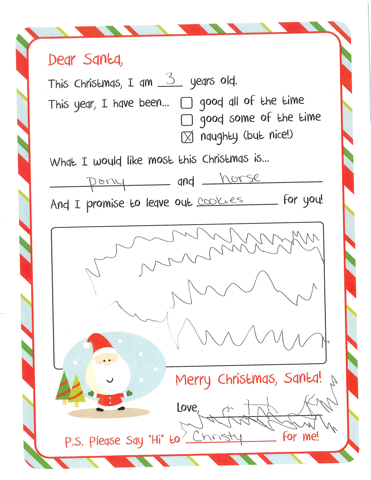 Dear Santa,
This Christmas, I am 3 years old.
This year, I have been... good all of the time
good some of the time
naughty (but nice!)
What I would like most this Christmas is...
pony and horse
And I promise to leave out cookies for you!
Merry Christmas, Santa!
Love,
P.S. Please Say "Hi" to Christy for me!